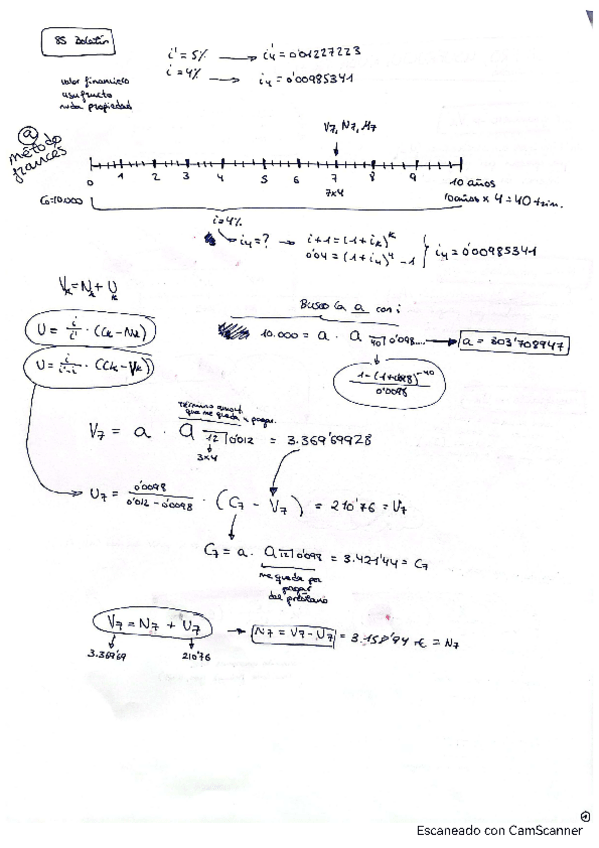 85 Boletín
i' = 5% → i'4 = 0'01227223
i = 4% → i4 = 0'00985341
valor financiero
usufructo
nuda propiedad
a
método
francés
V7, N7, U7
0 1 2 3 4 5 6 7 8 9 10 años
7x4
C0=10.000
10 años x 4 = 40 trim.
i=4%
i4 = ? → i+1 = (1+ik)^k
0'04 = (1+i4)^4 - 1
i4 = 0'00985341
Vk = Nk + Uk
Busco la a con i
U = i/i' · (Ck - Nk)
10.000 = a · a 40|0'098.... → a = 303'708947
U = i/i'-i · (Ck - Vk)
0'0098
término amort.
que me queda x pagar
V7 = a · a 12|0'012 = 3.369'69928
3x4
U7 = 0'0098/0'012-0'0098 · (C7 - V7) = 210'76 = U7
C7 = a · a 12|0'098 = 3.421'44 = C7
me queda por
pagar
del préstamo
V7 = N7 + U7 → N7 = V7 - U7 = 3.158'94 € = N7
3.369'69
210'76
Escaneado con CamScanner